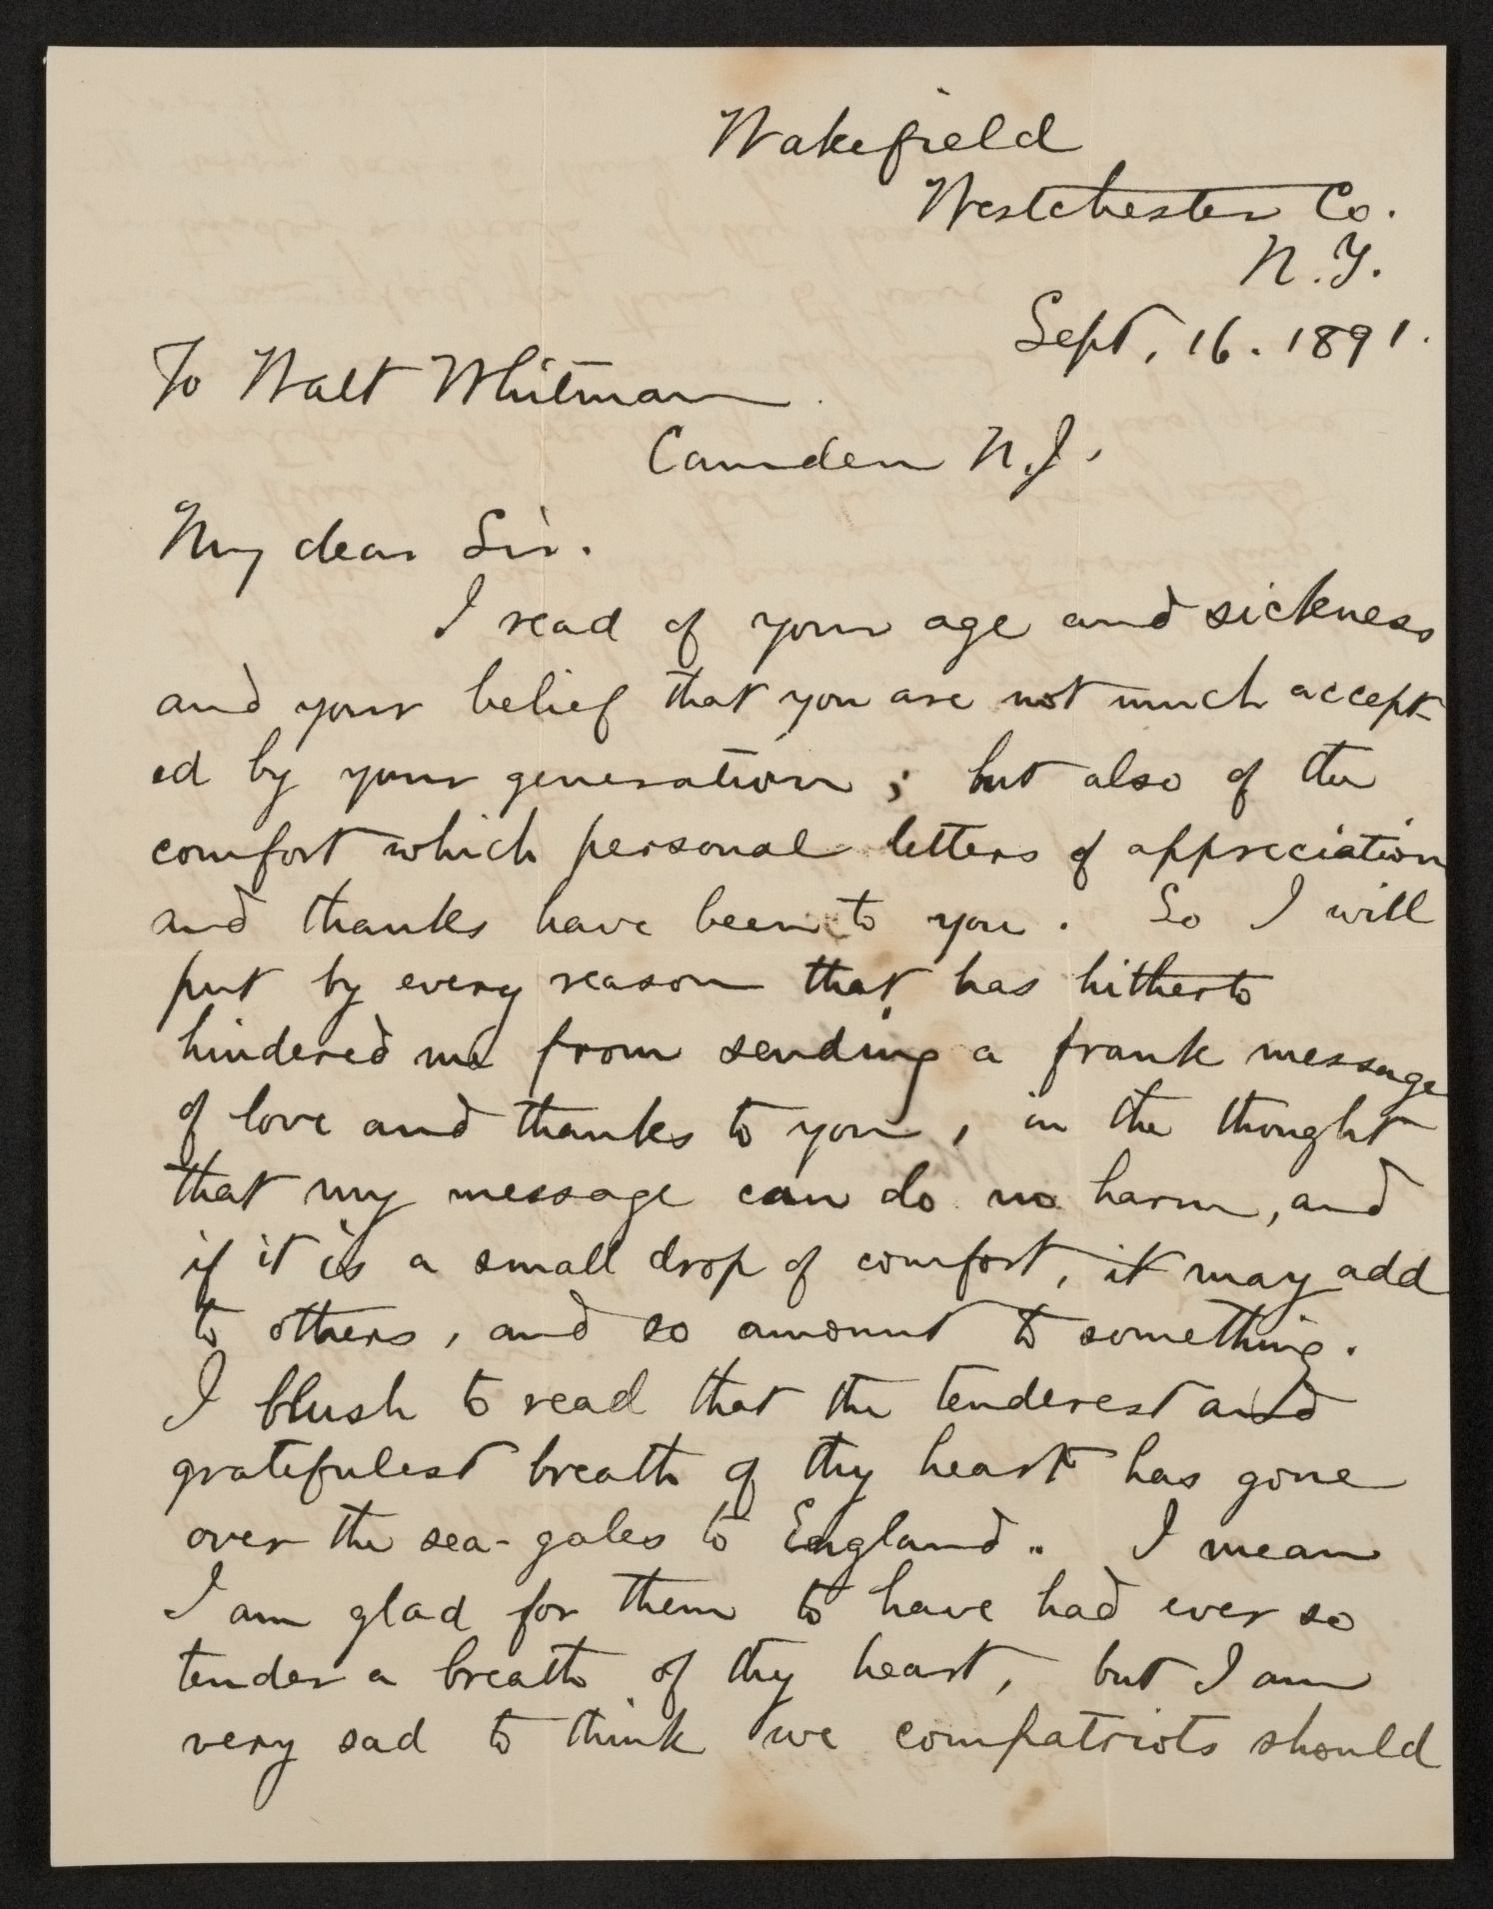 Wakefield
Westchester Co.
N.Y.
Sept. 16. 1891.
To Walt Whitman
Camden N.J.
My dear Sir.
I read of your age and sickness
and your belief that you are not much accept-
ed by your generation; but also of the
comfort which personal letters of appreciation
and thanks have been to you. So I will
put by every reason that has hitherto
hindered me from sending a frank message
of love and thanks to you, in the thought
that my message can do no harm, and
if it is a small drop of comfort, it may add
to others, and so amount to something.
I blush to read that the tenderest and
gratefulest breath of thy heart has gone
over the sea-gales to England. I mean
I am glad for them to have had ever so
tender a breath of thy heart, but I am
very sad to think we compatriots should